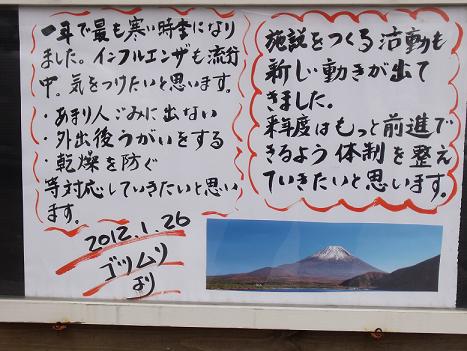 一年で最も寒い時季になり
ました。インフルエンザも流行
中。気をつけたいと思います。
・あまり人ごみに出ない
・外出後うがいをする
・乾燥を防ぐ
等対応していきたいと思い
ます。
2012.1.26
ゴツムリ
より
施設をつくる活動も
新しい動きが出て
きました。
来年度はもっと前進で
きるよう体制を整え
ていきたいと思います。